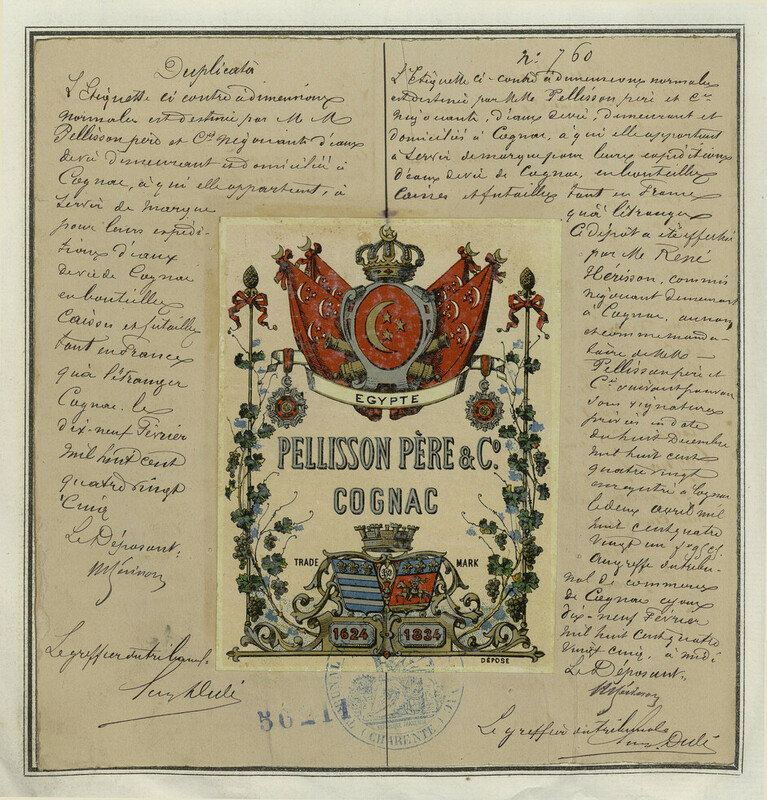 Duplicata
L'Etiquette ci contre à dimensions
normales est destinée par M M
Pellisson père et Cie négociants d'eaux
de vie demeurant et domiciliés à
Cognac, à qui elle appartient, à
servir de marque
pour leurs expédi-
tions d'eaux
de vie de Cognac
en bouteilles
caisses et futailles
tant en France
qu'à l'étranger
Cognac, le
dix-neuf Février
mil huit cent
quatre vingt
cinq
Le Déposant,
Le greffier du tribunal
No 760
L'Etiquette ci-contre à dimensions normales
est destinée par MM. Pellisson père et Cie
négociants d'eaux de vie, demeurant et
domiciliés à Cognac, à qui elle appartient
à servir de marque pour leurs expéditions
d'eaux de vie de Cognac, en bouteilles
caisses et futailles tant en France
qu'à l'étranger
Ce dépôt a été effectué
par Mr René
Hérisson, commis
négociant demeurant
à Cognac, au nom
et comme manda-
taire de MM
Pellisson père et
Cie suivant pouvoir
sous signatures
privées en date
du huit Décembre
mil huit cent
quatre vingt
enregistré à Cognac
le deux avril mil
huit cent quatre
vingt un
Au greffe du tribu-
nal de commerce
de Cognac ce jour
dix-neuf Février
mil huit cent quatre
vingt cinq, à midi
Le Déposant,
Le greffier du tribunal
EGYPTE
PELLISSON PÈRE & Co
COGNAC
TRADE MARK
1624 1834
DÉPOSÉ
56214
TRIBUNAL
(CHARENTE)